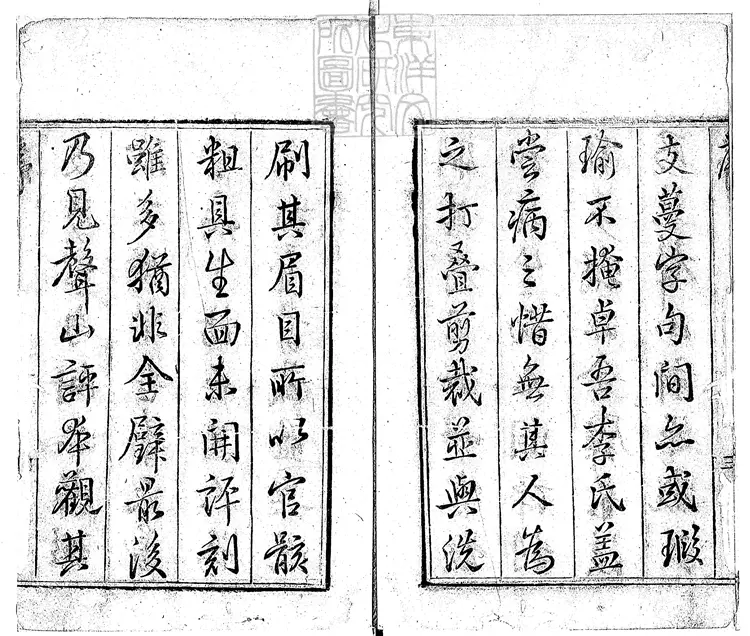 支蔓字句間亦或瑕
瑜不掩卓吾李氏蓋
嘗病之惜無其人為
之打疊剪裁並與洗
刷其眉目所以官骸
粗具生面未開評刻
雖多猶非全璧最後
乃見聲山評本觀其
東洋文
化研究
所圖書
三